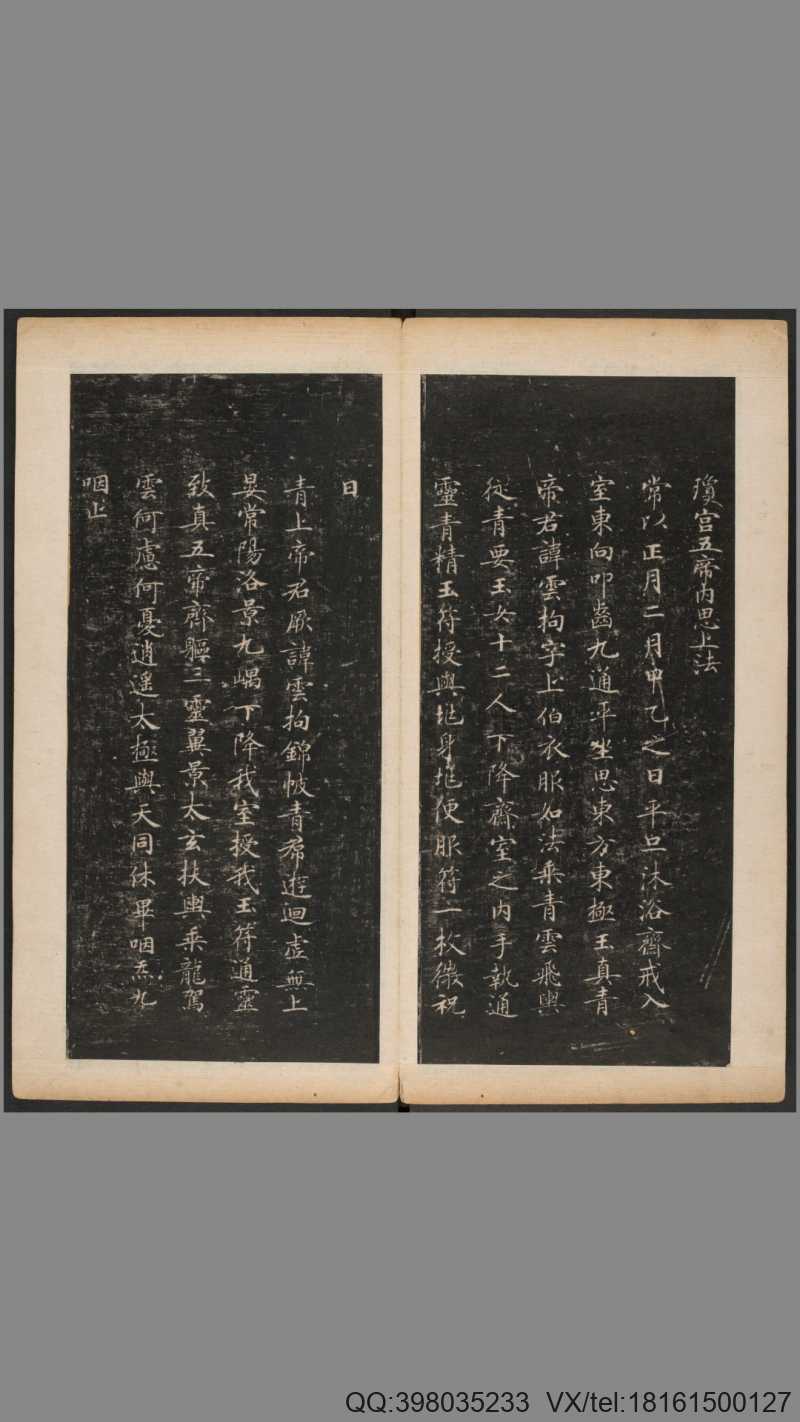 瓊宫五帝内思上法
常以正月二月甲乙之日平旦沐浴齋戒入
室東向叩齒九通平坐思東方東極玉真青
帝君諱雲拘字上伯衣服如法乘青雲飛輿
從青要玉女十二人下降齋室之内手執通
靈青精玉符授與地身地便服符一枚微祝
曰
青上帝君厥諱雲拘錦帔青帬遊迴虚無上
晏常陽洛景九嵎下降我室授我玉符通靈
致真五帝齊軀三靈翼景太玄扶輿乘龍駕
雲何慮何憂逍遥太極與天同休畢咽炁九
咽止
QQ:398035233 VX/tel:18161500127